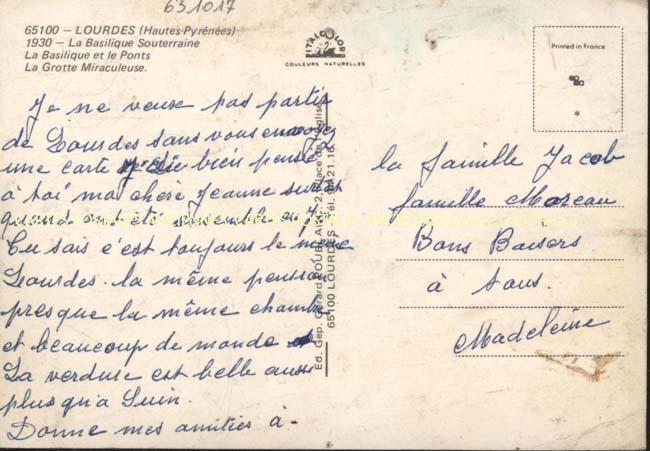 631017
65100 – LOURDES (Hautes-Pyrénées)
1930 – La Basilique Souterraine
La Basilique et le Ponts
La Grotte Miraculeuse.
ITALCOLOR
COULEURS NATURELLES
Printed in France
*
Je ne veuse pas partir
de Lourdes sans vous envoyez
une carte j'ai bien pensé
à toi ma chère Jeanne surtout
quand ont été
Tu sais c'est toujours le même
Lourdes. la même pension
presque la même chambre
et beaucoup de monde
La verdure est belle aussi
plus qu'a Juin.
Donne mes amitiés à -
la famille Jacob
famille Moreau
Bons Baisers
à tous.
Madeleine
Ed. Gep. Gérard 2, Place de l'Eglise
65100 LOURDES Tél. 21.16